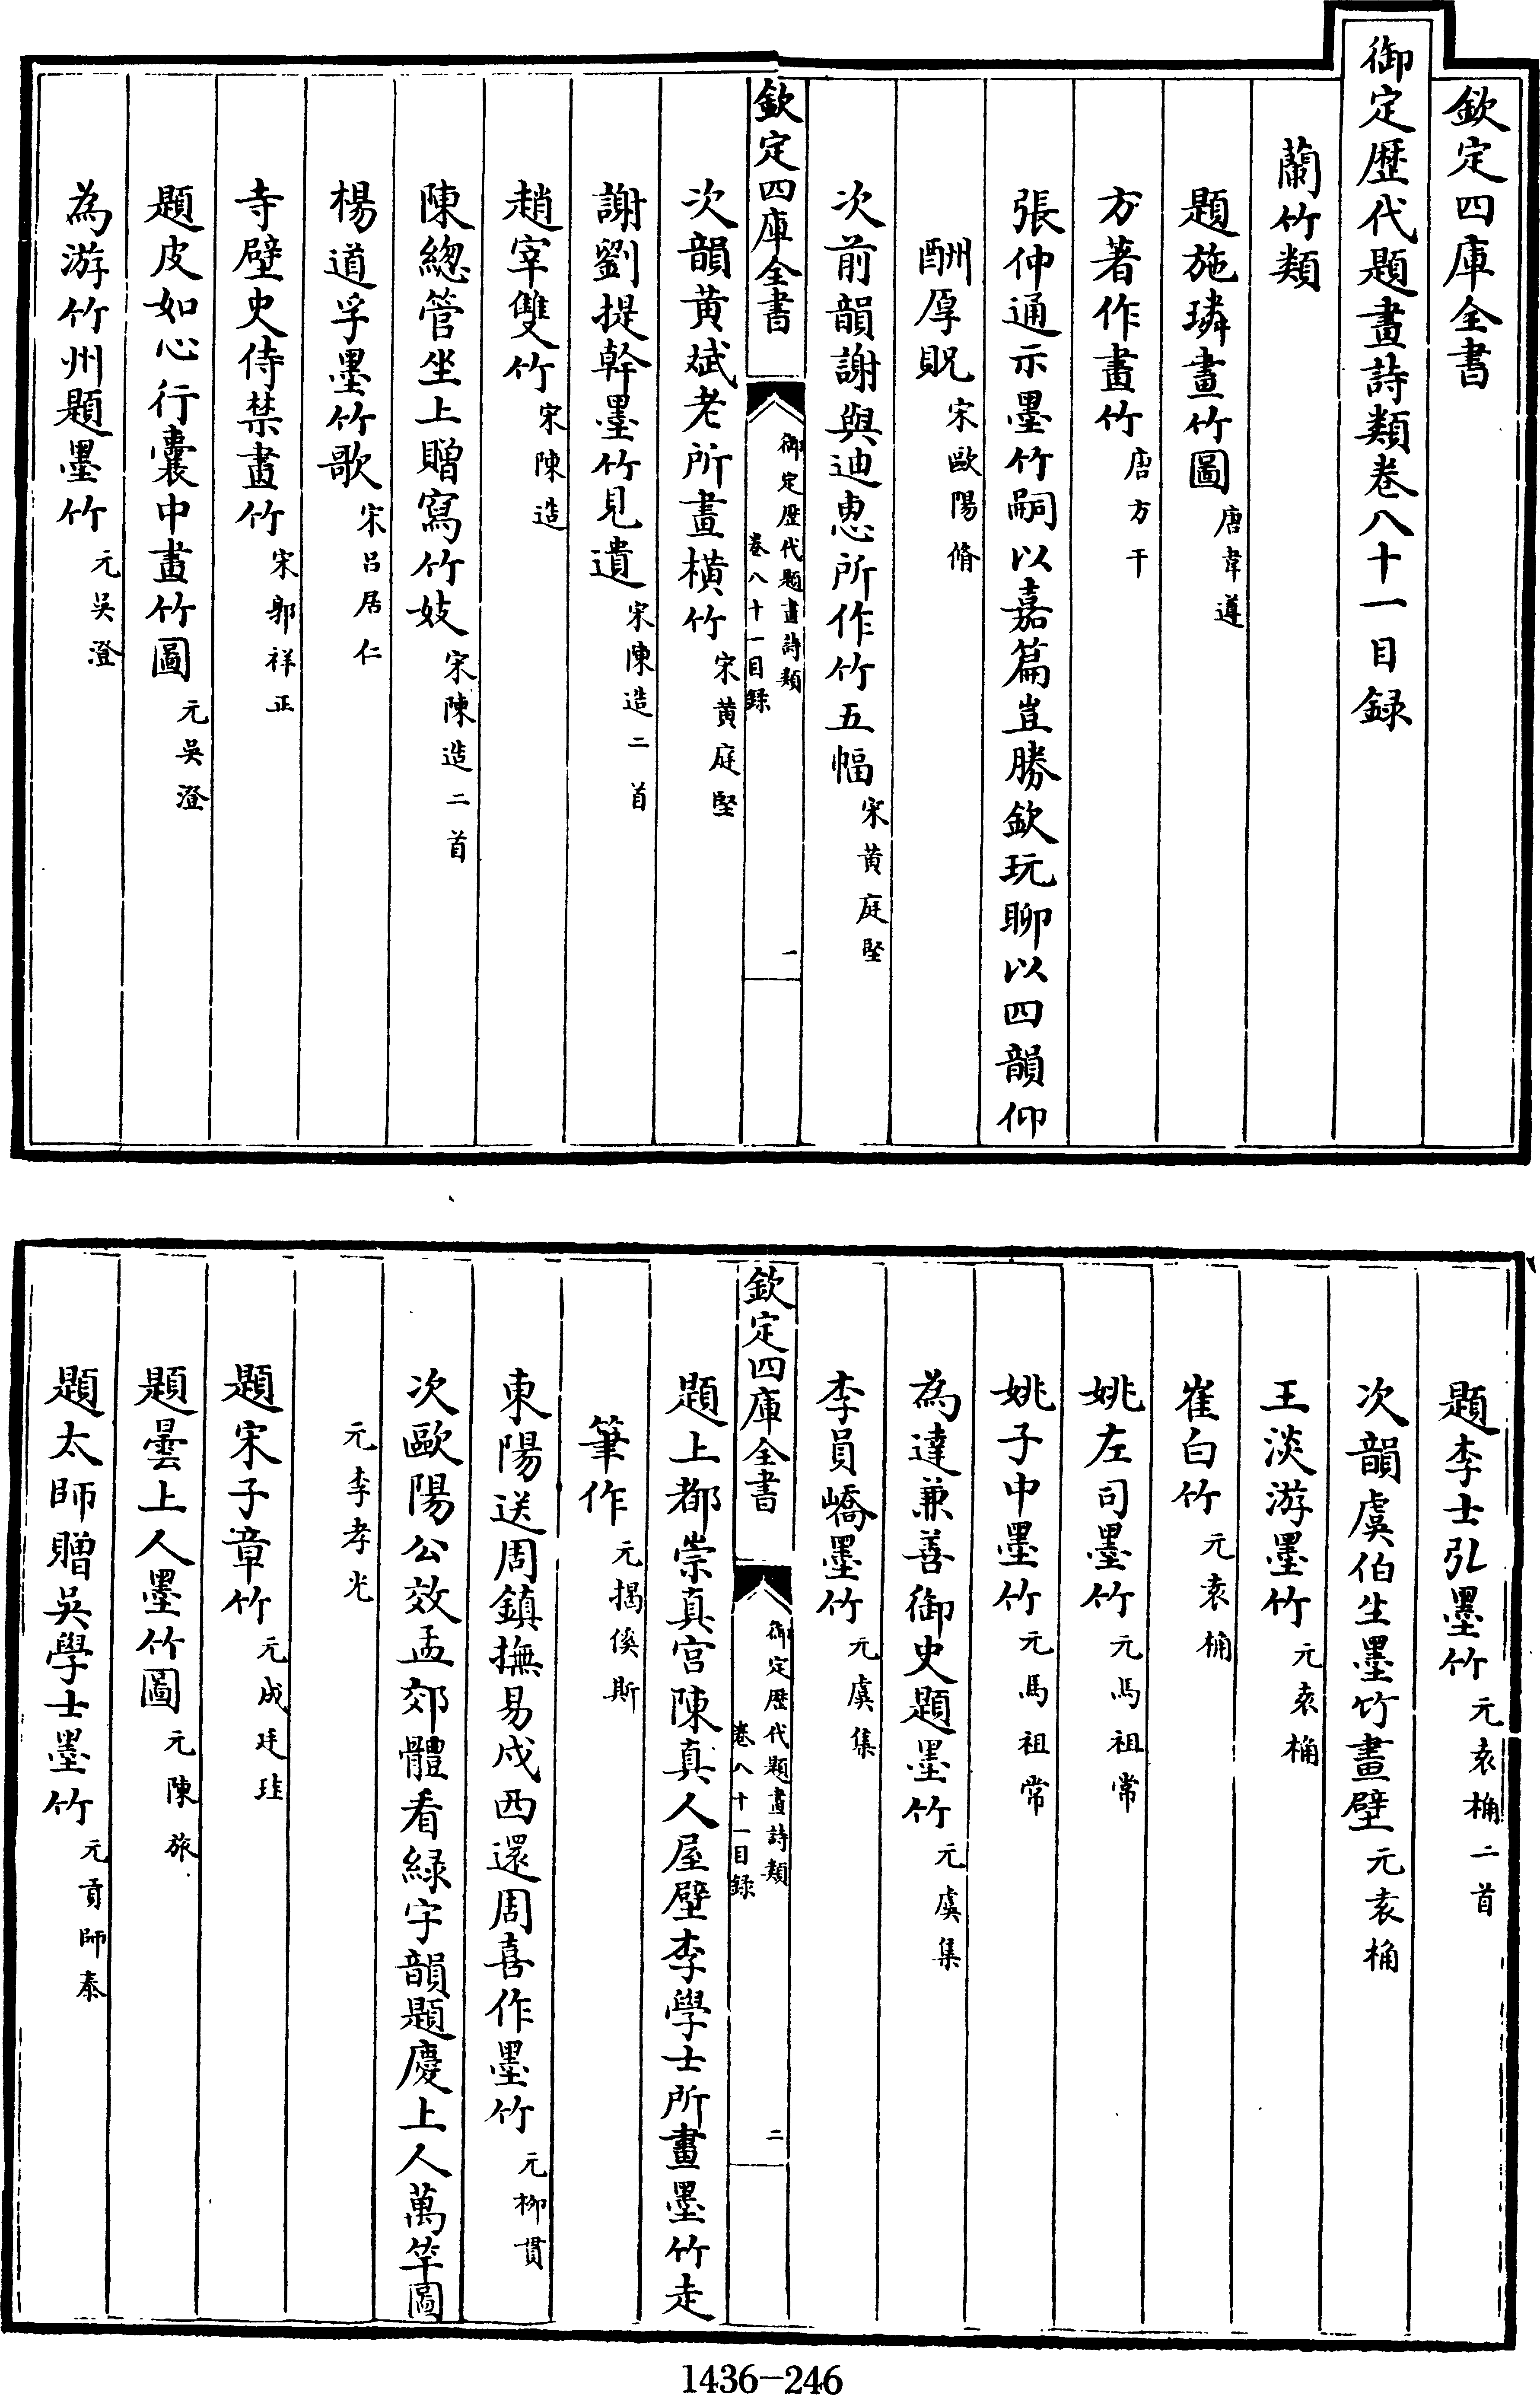 欽定四庫全書
御定歷代題畫詩類卷八十一目録
蘭竹類
題施璘畫竹圖唐韋遵
方著作畫竹唐方干
張仲通示墨竹嗣以嘉篇豈勝欽玩聊以四韻仰
酬厚貺宋歐陽脩
次前韻謝與迪惠所作竹五幅宋黄庭堅
欽定四庫全書
御定歷代題畫詩類
卷八十一目録
一
次韻黄斌老所畫横竹宋黄庭堅
謝劉提幹墨竹見遺宋陳造二首
趙宰雙竹宋陳造
陳總管坐上贈寫竹妓宋陳造二首
楊道孚墨竹歌宋吕居仁
寺壁史侍禁畫竹宋郭祥正
題皮如心行囊中畫竹圖元吳澄
為游竹州題墨竹元吳澄
題李士弘墨竹元袁桷二首
次韻虞伯生墨竹畫壁元袁桷
王淡游墨竹元袁桷
崔白竹元袁桷
姚左司墨竹元馬祖常
姚子中墨竹元馬祖常
為達兼善御史題墨竹元虞集
李員嶠墨竹元虞集
欽定四庫全書
御定歷代題畫詩類
卷八十一目録
二
題上都崇真宫陳真人屋壁李學士所畫墨竹走
筆作元揭傒斯
東陽送周鎮撫易戍西還周喜作墨竹元栁貫
次歐陽公效孟郊體看緑字韻題慶上人萬竿圖
元李孝光
題宋子章竹元成廷珪
題曇上人墨竹圖元陳旅
題太師贈吳學士墨竹元貢師泰
1436-246